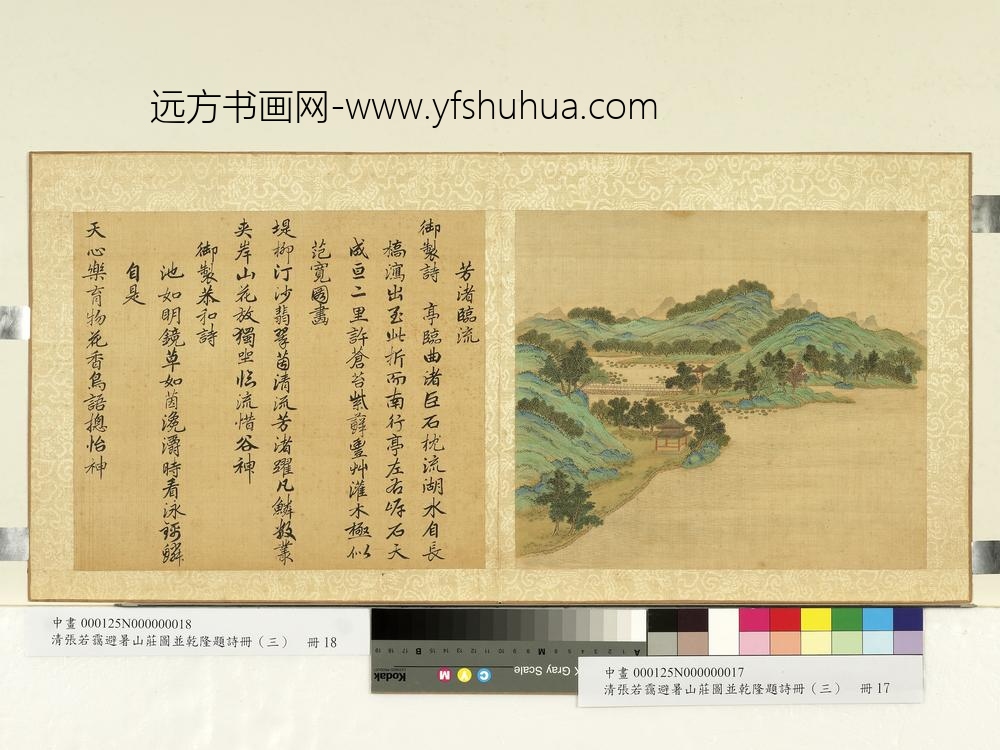 远方书画网-www.yfshuhua.com
芳渚臨流
御製詩 亭臨曲渚巨石枕流湖水自長
橋瀉出至此折而南行亭左右岸石天
成亘二里許蒼苔紫蘚豐艸灌木極似
范寬圖畫
堤柳汀沙翡翠茵清流芳渚躍凡鱗數叢
夾岸山花放獨坐臨流惜谷神
御製恭和詩
池如明鏡草如茵瀺灂時看泳錦鱗
自是
天心樂育物花香鳥語摠怡神
中畫 000125N000000018
清張若靄避暑山莊圖並乾隆題詩冊（三） 冊 18
中畫 000125N000000017
清張若靄避暑山莊圖並乾隆題詩冊（三） 冊 17
Kodak
K Gray Scale
C
Y
M
A 1 2 3 4 5 6 M 8 9 10 11 12 13 14 15 B 17 18 19